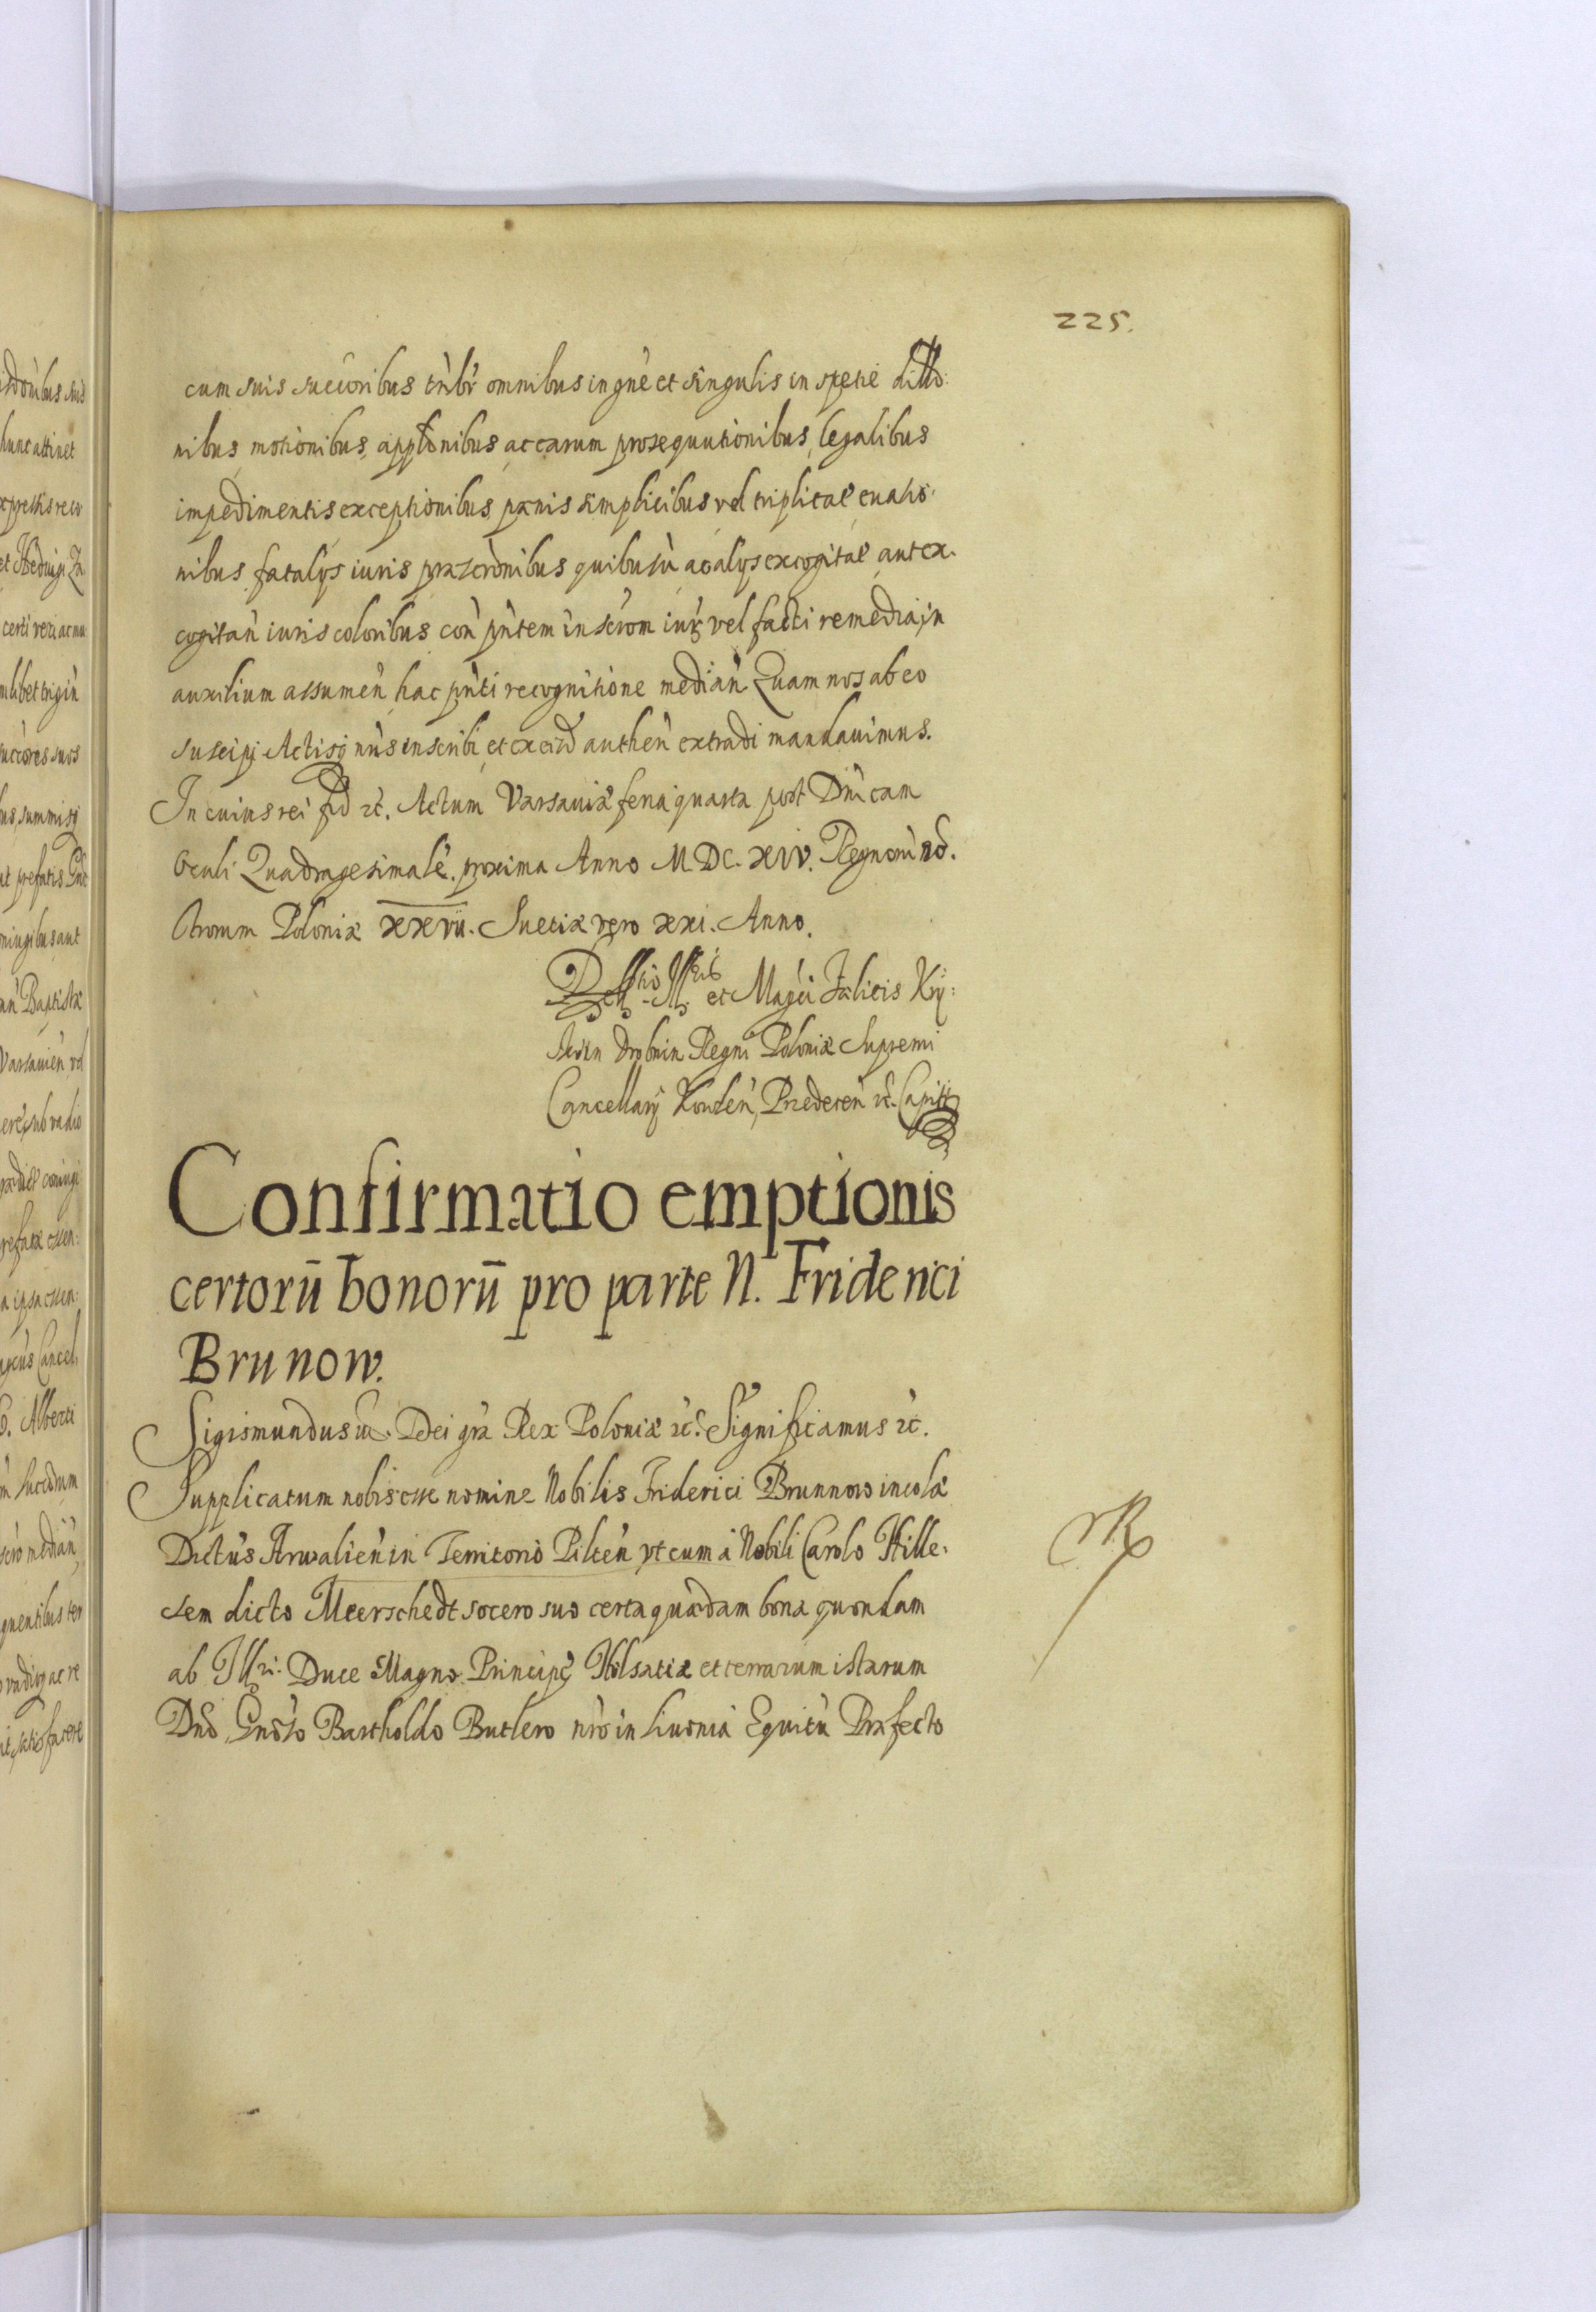 225.
cum suis succōribus tribȓ omnibus in gn̄e et singulis in specie dillo:
nibus, motionibus, applōnibus, ac earum prosequutionibus, legalibus
impedimentis exceptionibus pænis simplicibus vel triplicat̄ euasio:
nibus fatalÿs iuris præscrōnibus quibusū ac alÿs excogitat̄ aut ex.
cogitan̄ iuris coloribus con̄ pn̄tem inscrōm iurȩ vel facti remedia in
auxilium assumen̄ hac pn̄ti recognitione median̄ Quam nos ab eo
suscipi Actisqȝ nr̄is inscribi, et ex eisd̄ authen̄ extradi mandauimus.
In cuius rei fid̄ ꝛc̄. Actum Varsauiæ feria quarta post Dn̄icam
Oculi Quadragesimale. proxima Anno M. DC. XIV. Regnorū nō.
strorum Poloniæ XXVII. Suetiæ vero XXI. Anno.
et Mag̃ci Fælicis Krÿ:
Drobnin Regni Poloniæ Supremi
Cancellarÿ Præedecen̄ ꝛc̄. Capit
Confirmatio emptionis
certorū bonorū pro parte N. Friderici
Brunow.
Sigismundus iii. Dei gr̄a Rex Poloniæ ꝛc̄. Significamus ꝛc̄.
Supplicatum nobis esse nomine Nobilis Friderici Brunnow incolæ
Dictus Arwalien̄ in Territorio Pilten̄ vt cum à Nobili Carolo Hille.
sem dicto Meerschedt socero suo certa quædam bona quondam
ab Illri: Duce Magno Principe Holsatiæ et terrarum istarum
Dn̄o, Gn̄oso Bartholdo Butlero nr̄o in Liuonia Equitū Præfecto